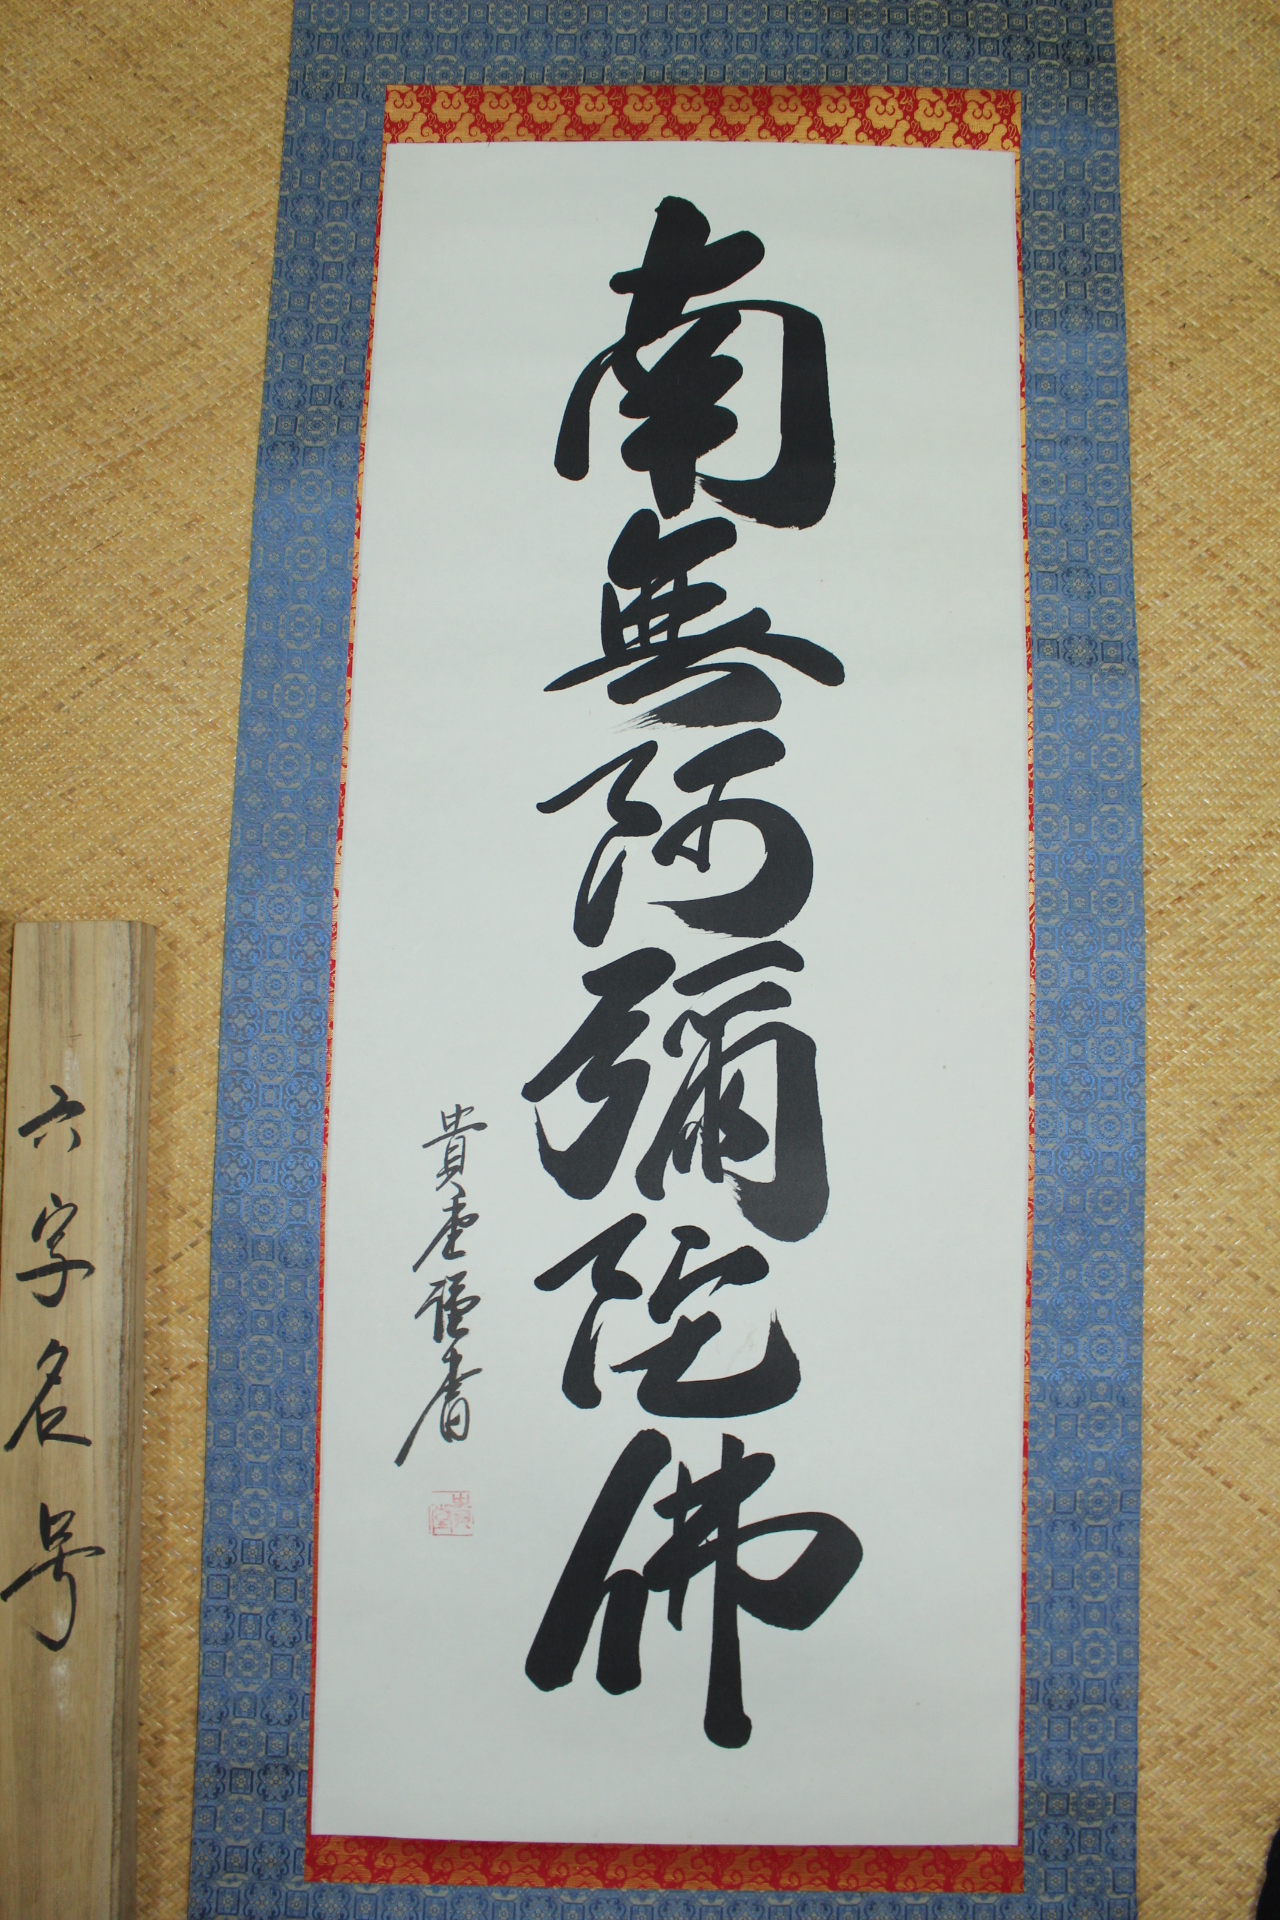 南無阿彌陀佛
貴堂謹書
六字名号